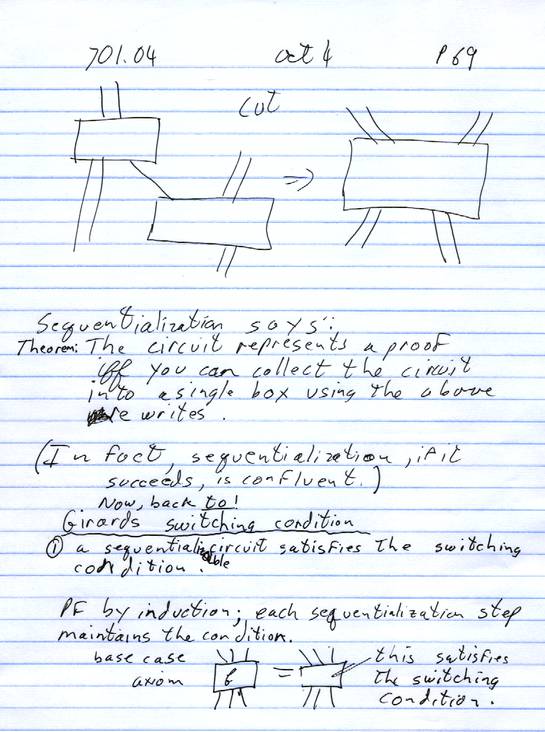 701.04 oct 4 P69
cut
⇒
Sequentialization says:
Theorem: The circuit represents a proof
iff you can collect the circuit
into a single box using the above
rewrites.
(In fact, sequentialization, if it
succeeds, is confluent.)
Now, back to!
Girards switching condition
① a sequentializable circuit satisfies the switching
condition.
PF by induction; each sequentialization step
maintains the condition.
base case this satisfies
axiom f = the switching
condition.